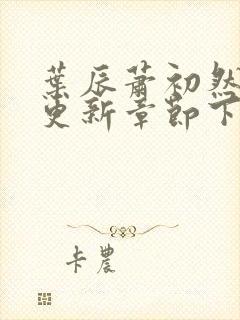 葉辰蕭初然
更新章節下
卡農